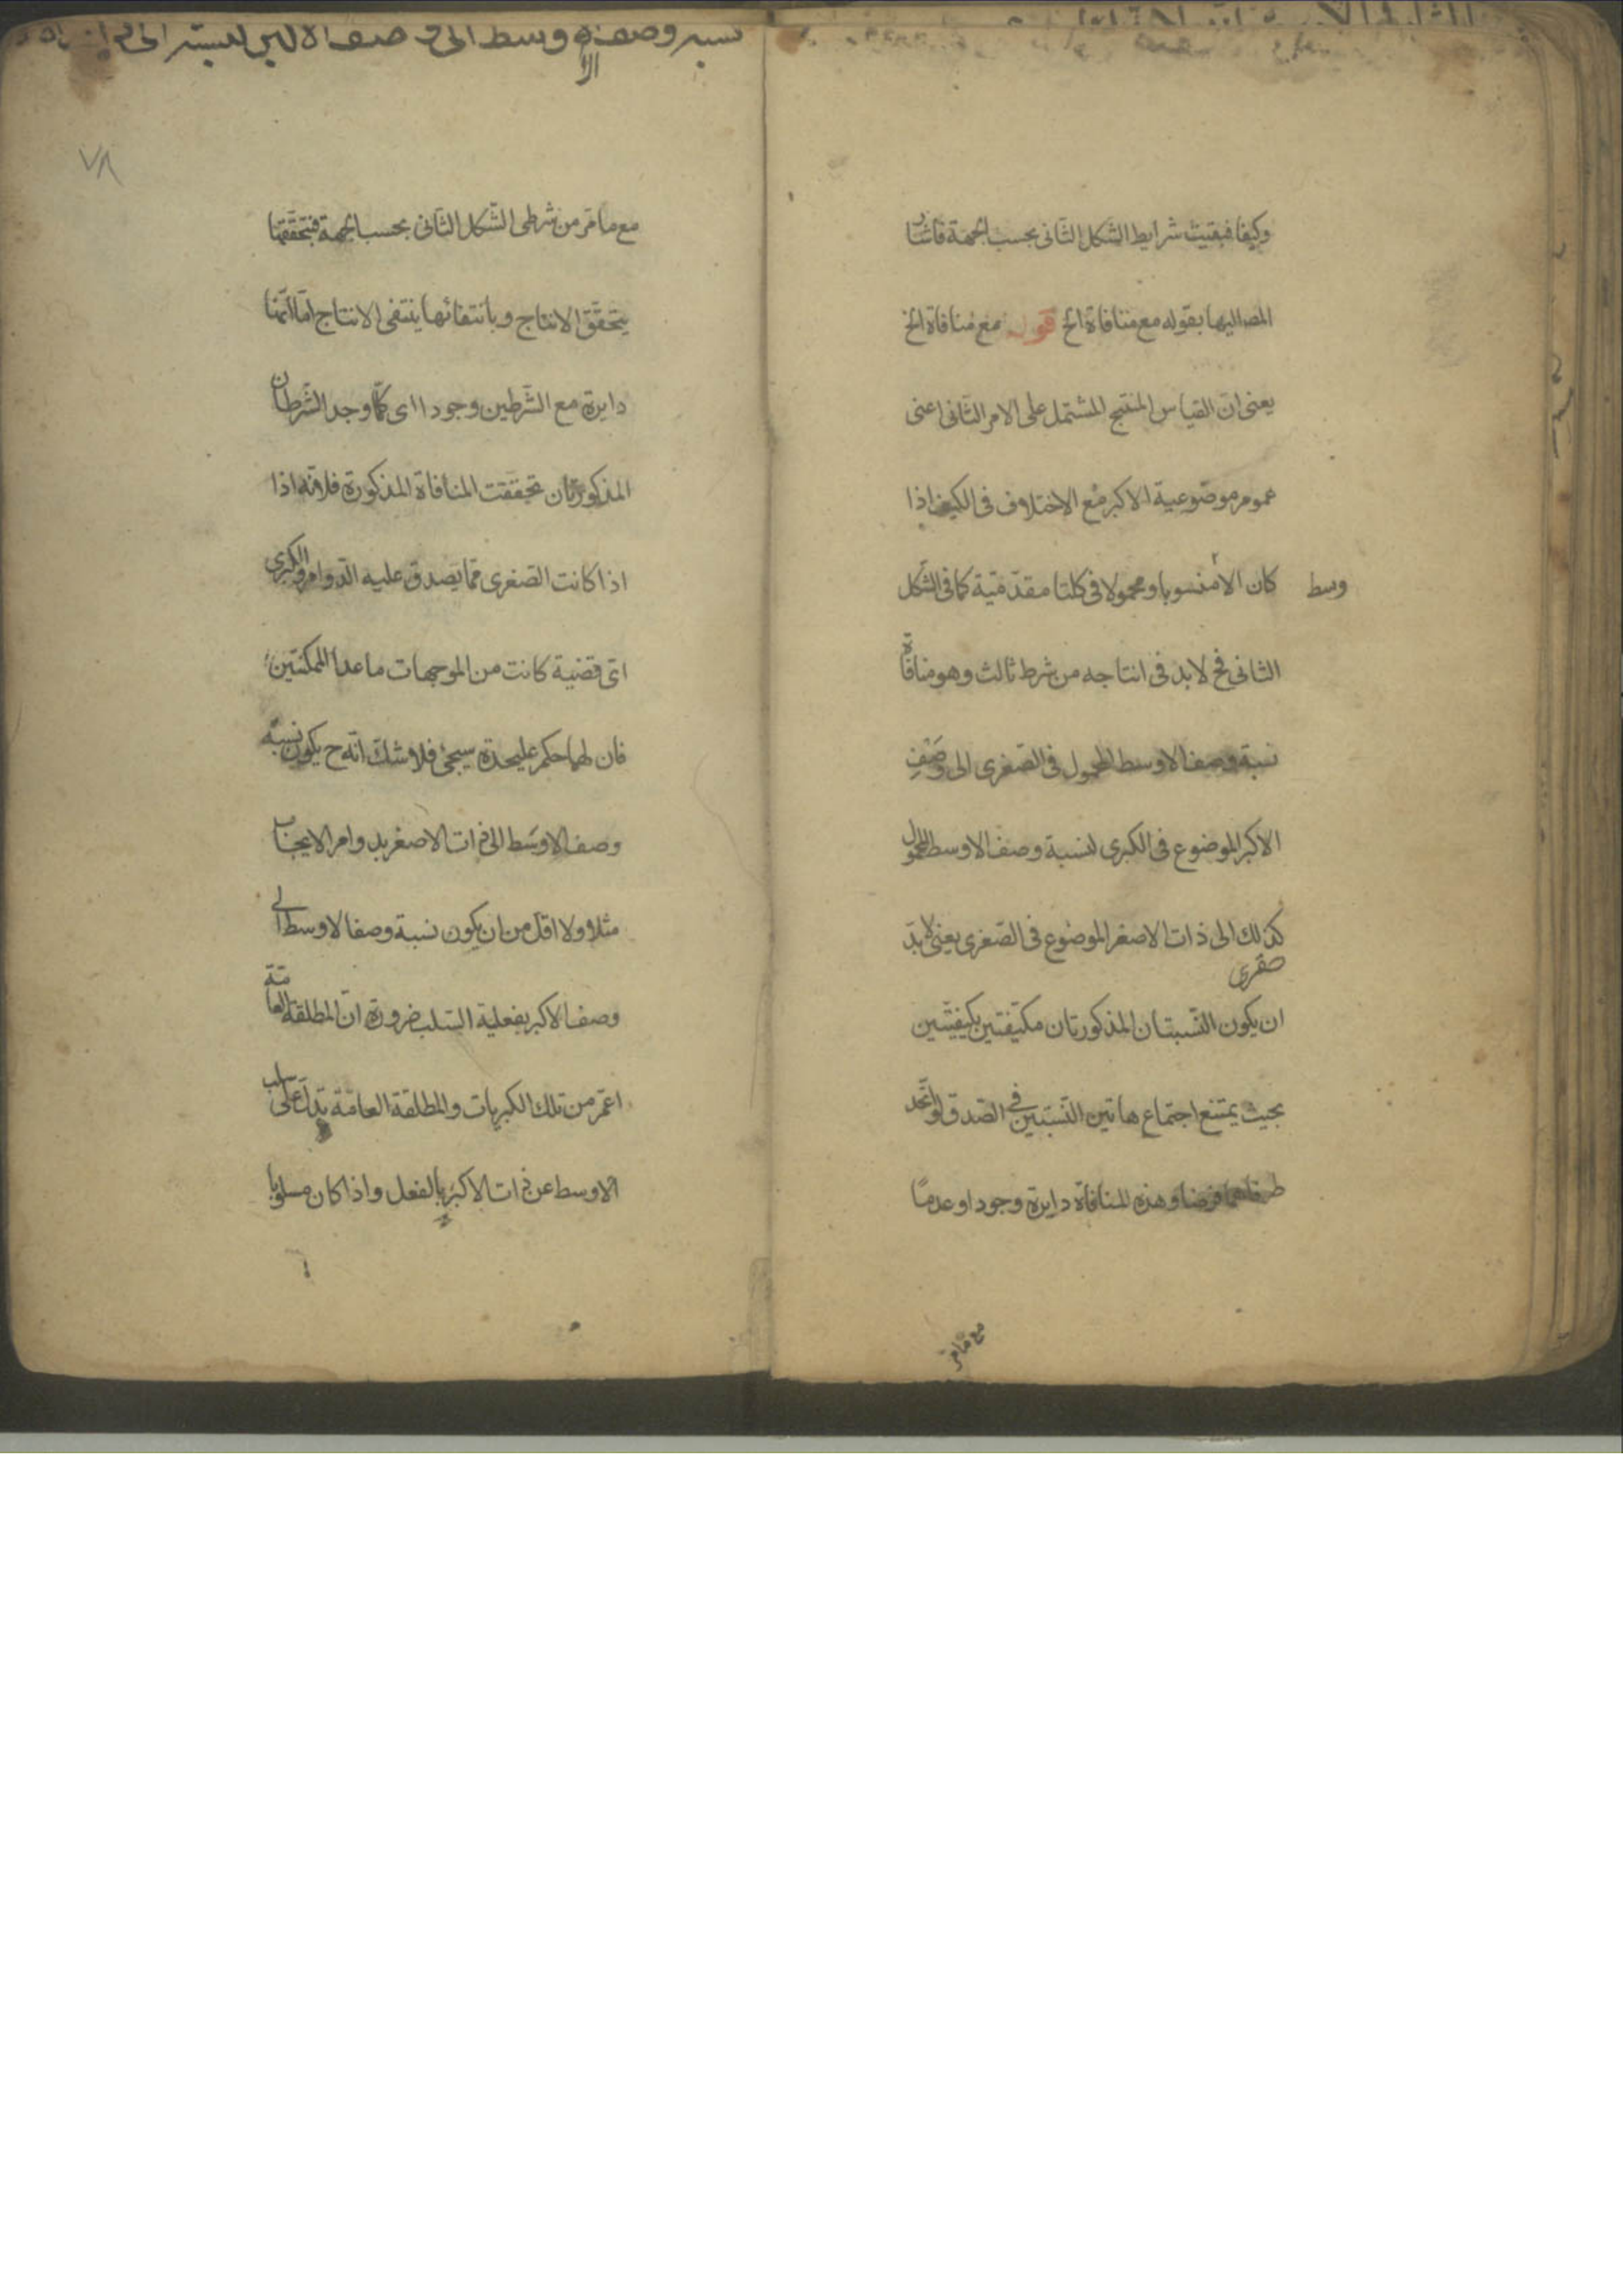 وكيفا فبقيت شرايط الشكل الثانى بحسب الجهة فاشار
المصـ اليها بقوله مع منافاة الخ قوله مع منافاة الخ
يعنى ان القياس المنتج المشتمل على الامر الثانى اعنى
عموم موضوعية الاكبر مع الاختلاف فى الكيف اذا
كان الا منسوبا ومحمولا فى كلتا مقدمتية كما فى الشكل
وسط
الثانى فح لا بد فى انتاجه من شرط ثالث وهو منافاة
نسبة وصف الاوسط المحمول فى الصغرى الى وصف
الاكبر الموضوع فى الكبرى لنسبة وصف الاوسط المحمول
كذلك الى ذات الاصغر الموضوع فى الصغرى يعنى لا بد
صغرى
ان يكون النسبتان المذكورتان مكيفتين بكيفيتين
بحيث يمتنع اجتماع هاتين النسبتين فى الصدق لو اتحد
طرفاهما فرضا وهذه المنافاة دايرة وجودا وعدما
مع ما مر
نسبة وصف وسط الى
٧٨
مع ما مر من شرطى الشكل الثانى بحسب الجهة فبتحققها
يتحقق الانتاج وبانتفائها ينتفى الانتاج اما انها
دايرة مع الشرطين وجودا اى كلما وجد الشرطان
المذكوران تحققت المنافاة المذكورة فلانه اذا
اذا كانت الصغرى مما يصدق عليه الدوام والكبرى
اى قضية كانت من الموجهات ما عدا الممكنتين
فان لهما حكم عليحدة سيجئ فلا شك انه ح يكون نسبة
وصف الاوسط الى ذات الاصغر بدوام الايجاب
مثلا ولا اقل من ان يكون نسبة وصف الاوسط الى
وصف الاكبر بفعلية السلب ضرورة ان المطلقة العامة
اعم من تلك الكبريات والمطلقة العامة تدل على سلب
الاوسط عن ذات الاكبر بالفعل واذا كان مسلوبا